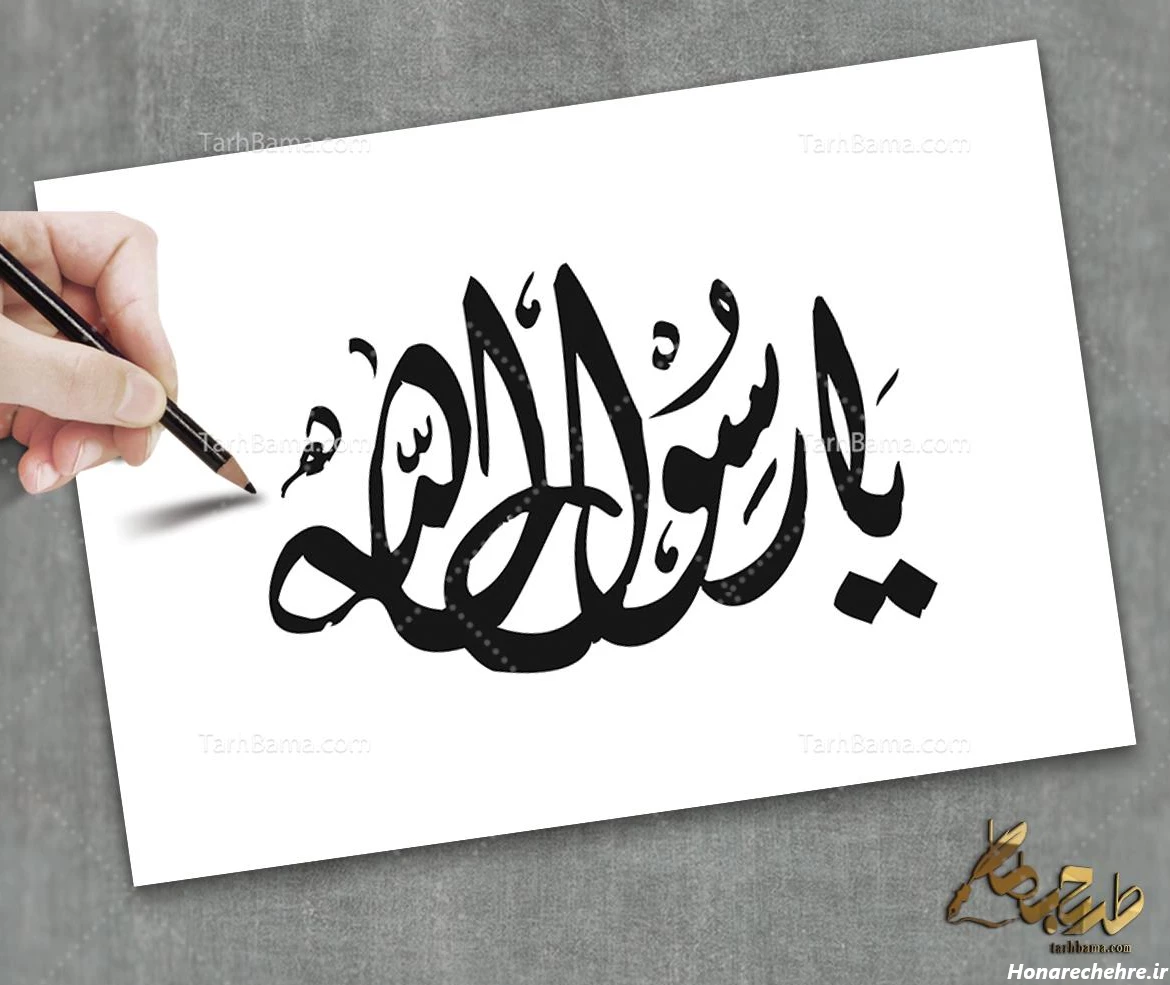 TarhBama.com TarhBama.com
يا رسول الله
TarhBama.com TarhBama.com
TarhBama.com TarhBama.com
طرح با ما
tarhbama.com
Honarechehre.ir